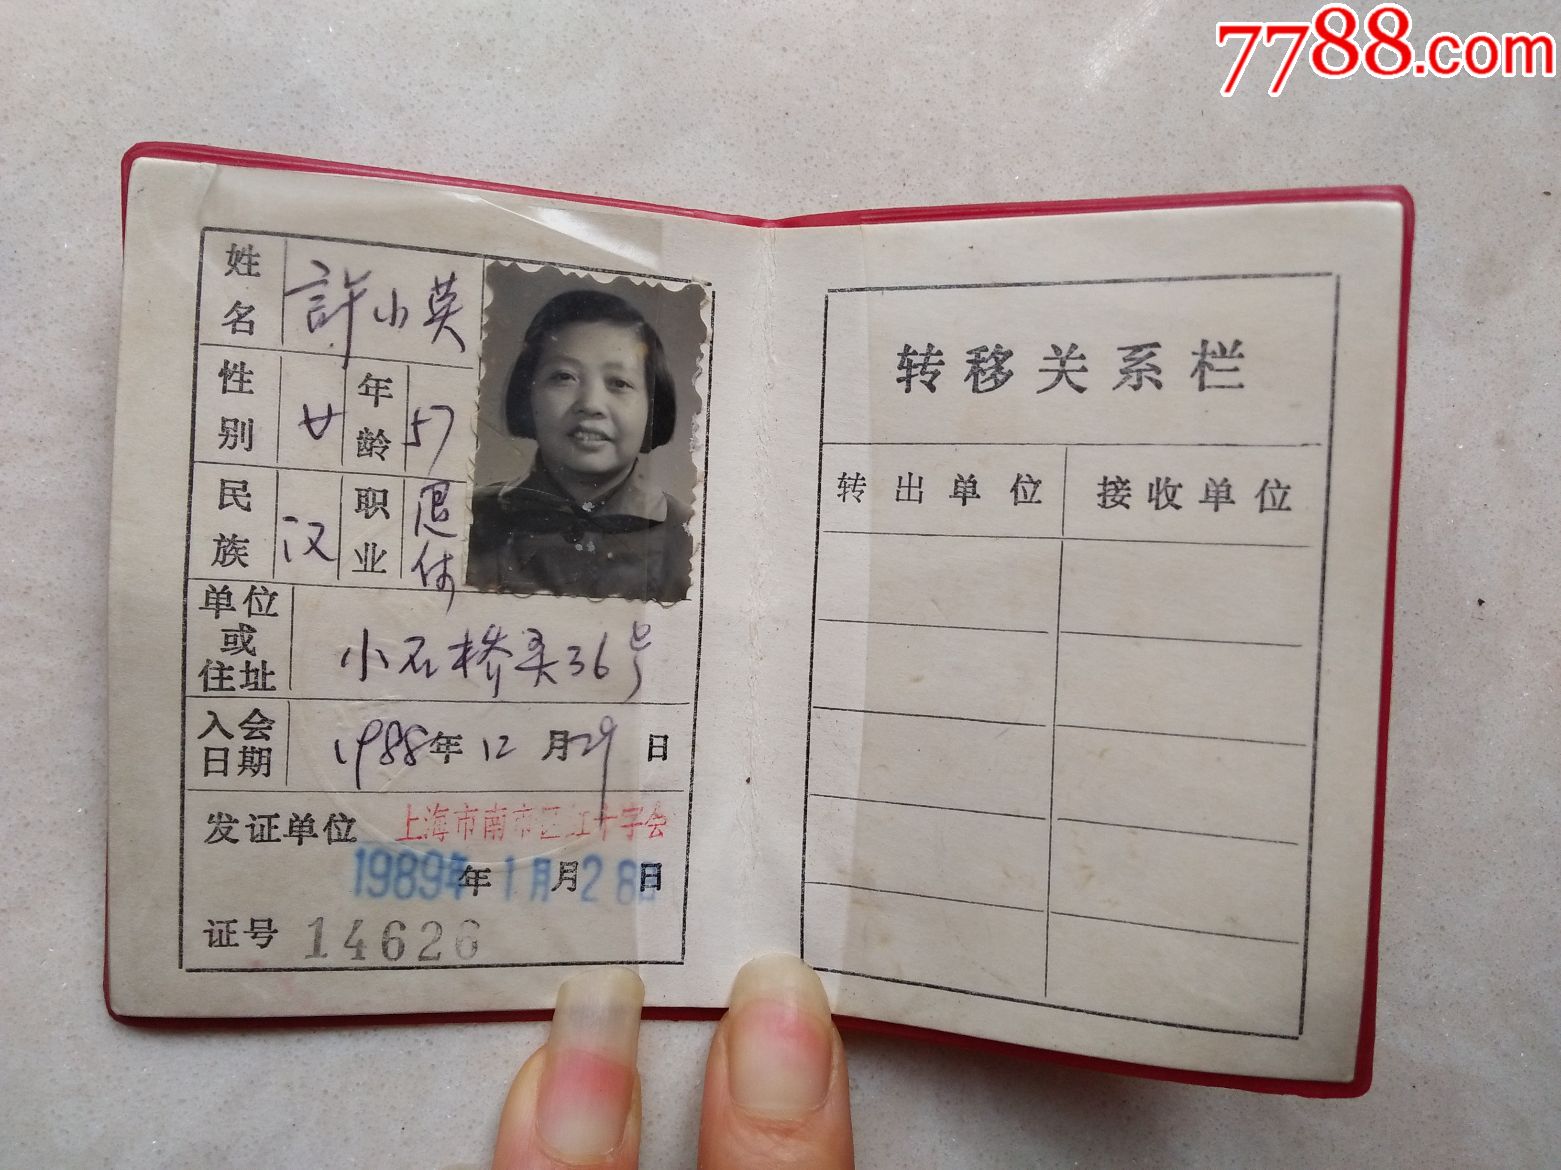 7788.com
姓名 許小英
性别 女 年龄 57
民族 汉 职业 退休
单位或住址 小石桥头36号
入会日期 1988年12月29日
发证单位 上海市南市区红十字会
1989年年1月月28日日
证号 14626
转移关系栏
转出单位 接收单位